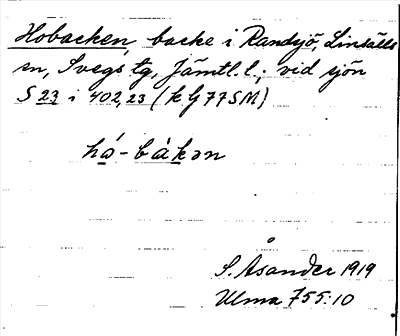 Hobacken, backe i Randsjö, Linsälls
sn, Svegs tg, Jämtl. l.; vid sjön
S 23 i 402,23 (k G 77 S M)
há-bàkən
S. Åsander 1919
Ulma 755:10